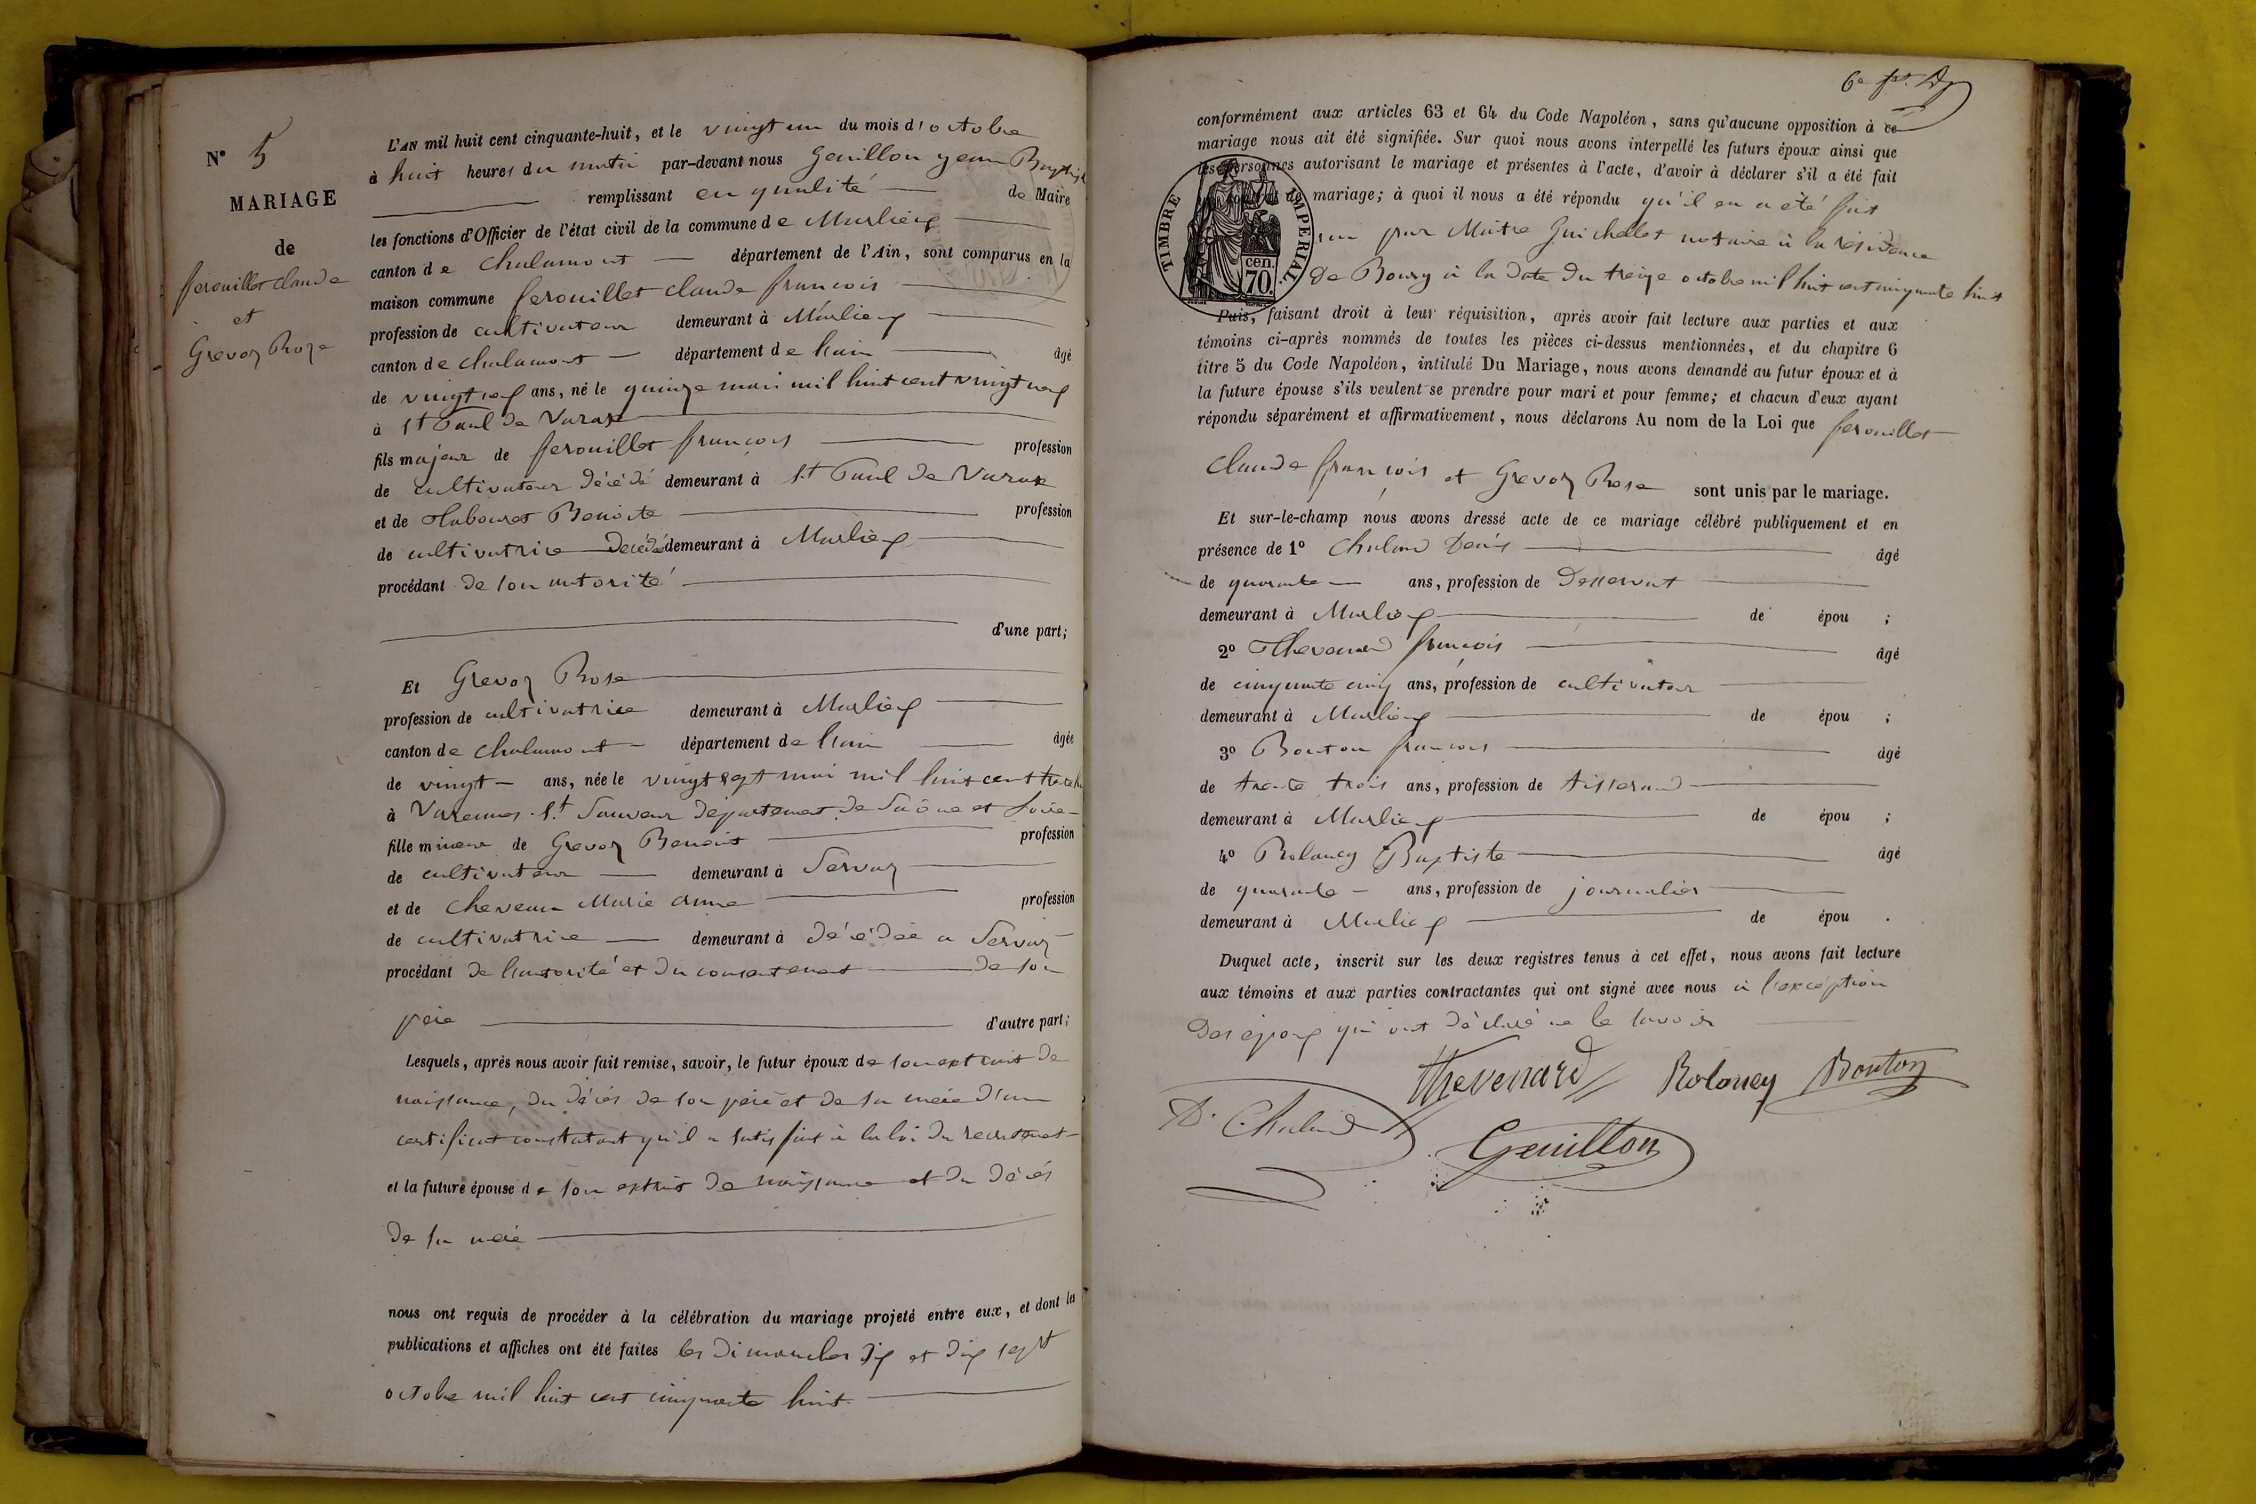 N° 5
MARIAGE
de
ferouillet claude
et
Grevoz Rose
L'AN mil huit cent cinquante-huit, et le vingt un du mois d'octobre
à huit heures du matin par-devant nous Genillon jean Baptiste
remplissant en qualité de Maire
les fonctions d'Officier de l'état civil de la commune de Marlieux
canton de chalamont département de l'Ain, sont comparus en la
maison commune ferouillet claude francois
profession de cultivateur demeurant à Marlieux
canton de chalamont département de l'ain âgé
de vingt neuf ans, né le quinze mars mil huit cent vingt neuf
à St Paul de Varax
fils majeur de ferouillet françois profession
de cultivateur décédé demeurant à St Paul de Varax
et de Benoite profession
de cultivatrice décédé demeurant à Marlieux
procédant de son autorité
d'une part;
Et Grevoz Rose
profession de cultivatrice demeurant à Marlieux
canton de chalamont département de l'ain âgée
de vingt ans, née le vingt sept mai mil huit cent
à Varennes St Sauveur département de Saône et Loire
fille mineur de Grevoz Benoit profession
de cultivateur demeurant à Servaz
et de Marie anne profession
de cultivatrice demeurant à décédée a Servaz
procédant de l'autorité et du consentement de son
père
d'autre part;
Lesquels, après nous avoir fait remise, savoir, le futur époux de son extrait de
naissance, du décès de son père et de sa mère d'un
certificat constatant qu'il a satisfait à la loi du recrutement
et la future épouse de son extrait de naissance et du décès
de sa mère
nous ont requis de procéder à la célébration du mariage projeté entre eux, et dont les
publications et affiches ont été faites les dimanches dix et dix sept
octobre mil huit cent cinquante huit
conformément aux articles 63 et 64 du Code Napoléon, sans qu'aucune opposition à ce
mariage nous ait été signifiée. Sur quoi nous avons interpellé les futurs époux ainsi que
les personnes autorisant le mariage et présentes à l'acte, d'avoir à déclarer s'il a été fait
contrat de mariage; à quoi il nous a été répondu qu'il en a été fait
TIMBRE IMPERIAL.
70. cen.
un par Maitre Guichelet notaire à la résidence
de Bourg à la date du treize octobre mil huit cent cinquante huit
Puis, faisant droit à leur réquisition, après avoir fait lecture aux parties et aux
témoins ci-après nommés de toutes les pièces ci-dessus mentionnées, et du chapitre 6
titre 5 du Code Napoléon, intitulé Du Mariage, nous avons demandé au futur époux et à
la future épouse s'ils veulent se prendre pour mari et pour femme; et chacun d'eux ayant
répondu séparément et affirmativement, nous déclarons Au nom de la Loi que ferouillet
claude françois et Grevoz Rose sont unis par le mariage.
Et sur-le-champ nous avons dressé acte de ce mariage célébré publiquement et en
présence de 1° Chaland Denis âgé
de quarante ans, profession de Desservant
demeurant à Marlieux de épou ;
2° Thevenard françois âgé
de cinquante cinq ans, profession de cultivateur
demeurant à Marlieux de épou ;
3° Bouton francois âgé
de trente trois ans, profession de tisserand
demeurant à Marlieux de épou ;
4° Rolancy Baptiste âgé
de quarante ans, profession de journalier
demeurant à Marlieux de épou .
Duquel acte, inscrit sur les deux registres tenus à cet effet, nous avons fait lecture
aux témoins et aux parties contractantes qui ont signé avec nous à l'exception
des époux qui ont déclaré ne le savoir
Thevenard Rolancy Bouton
D. Chaland
Genillon